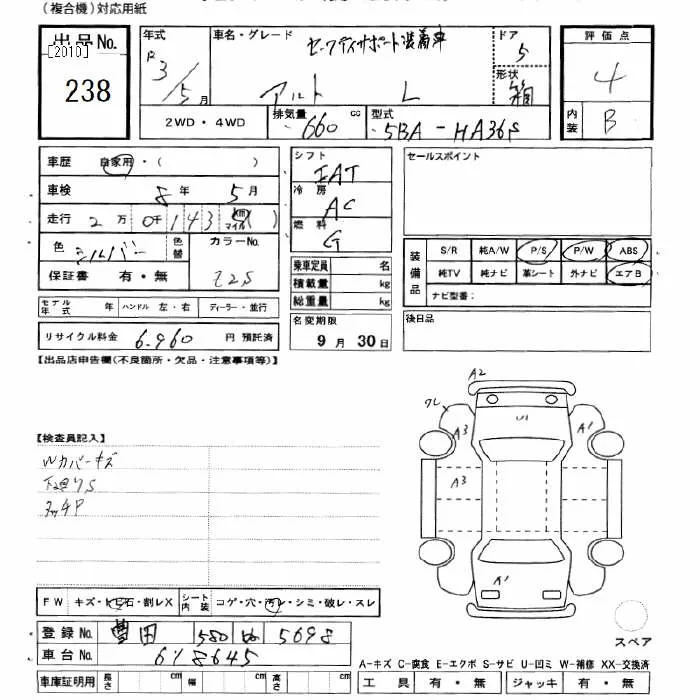 (複合機)対応用紙
出品No.
[2010]
238
年式
R3/5月
車名・グレード
セーフティサポート装着車
アルト L
ドア
5
形状
箱
評価点
4
内装
B
2WD・4WD
排気量
660 cc
型式
5BA-HA36S
車歴 自家用・( )
車検 8年 5月
走行 2万0千143 km マイル ( )
色 シルバー 色替
カラーNo.
Z2S
保証書 有・無
モデル年式 年 ハンドル 左・右 ディーラー・並行
リサイクル料金 6,960 円 預託済
シフト
IAT
冷房
AC
燃料
G
乗車定員 名
積載量 kg
総重量 kg
名変期限
9月30日
セールスポイント
装備品
S/R 純A/W P/S P/W ABS
純TV 純ナビ 革シート 外ナビ エアB
ナビ型番:
後日品
【出品店申告欄(不良箇所・欠品・注意事項等)】
【検査員記入】
Wカバーキズ
下廻りS
A2
クレ
U1
A3
A1
A3
A1
FW キズ・トビ石・割レX
シート内装 コゲ・穴・汚レ・シミ・破レ・スレ
登録No. 豊田 580 5698
車台No. 618645
車庫証明用 長さ cm 幅 cm 高さ cm
スペア
A-キズ C-腐食 E-エクボ S-サビ U-凹ミ W-補修 XX-交換済
工具 有・無 ジャッキ 有・無